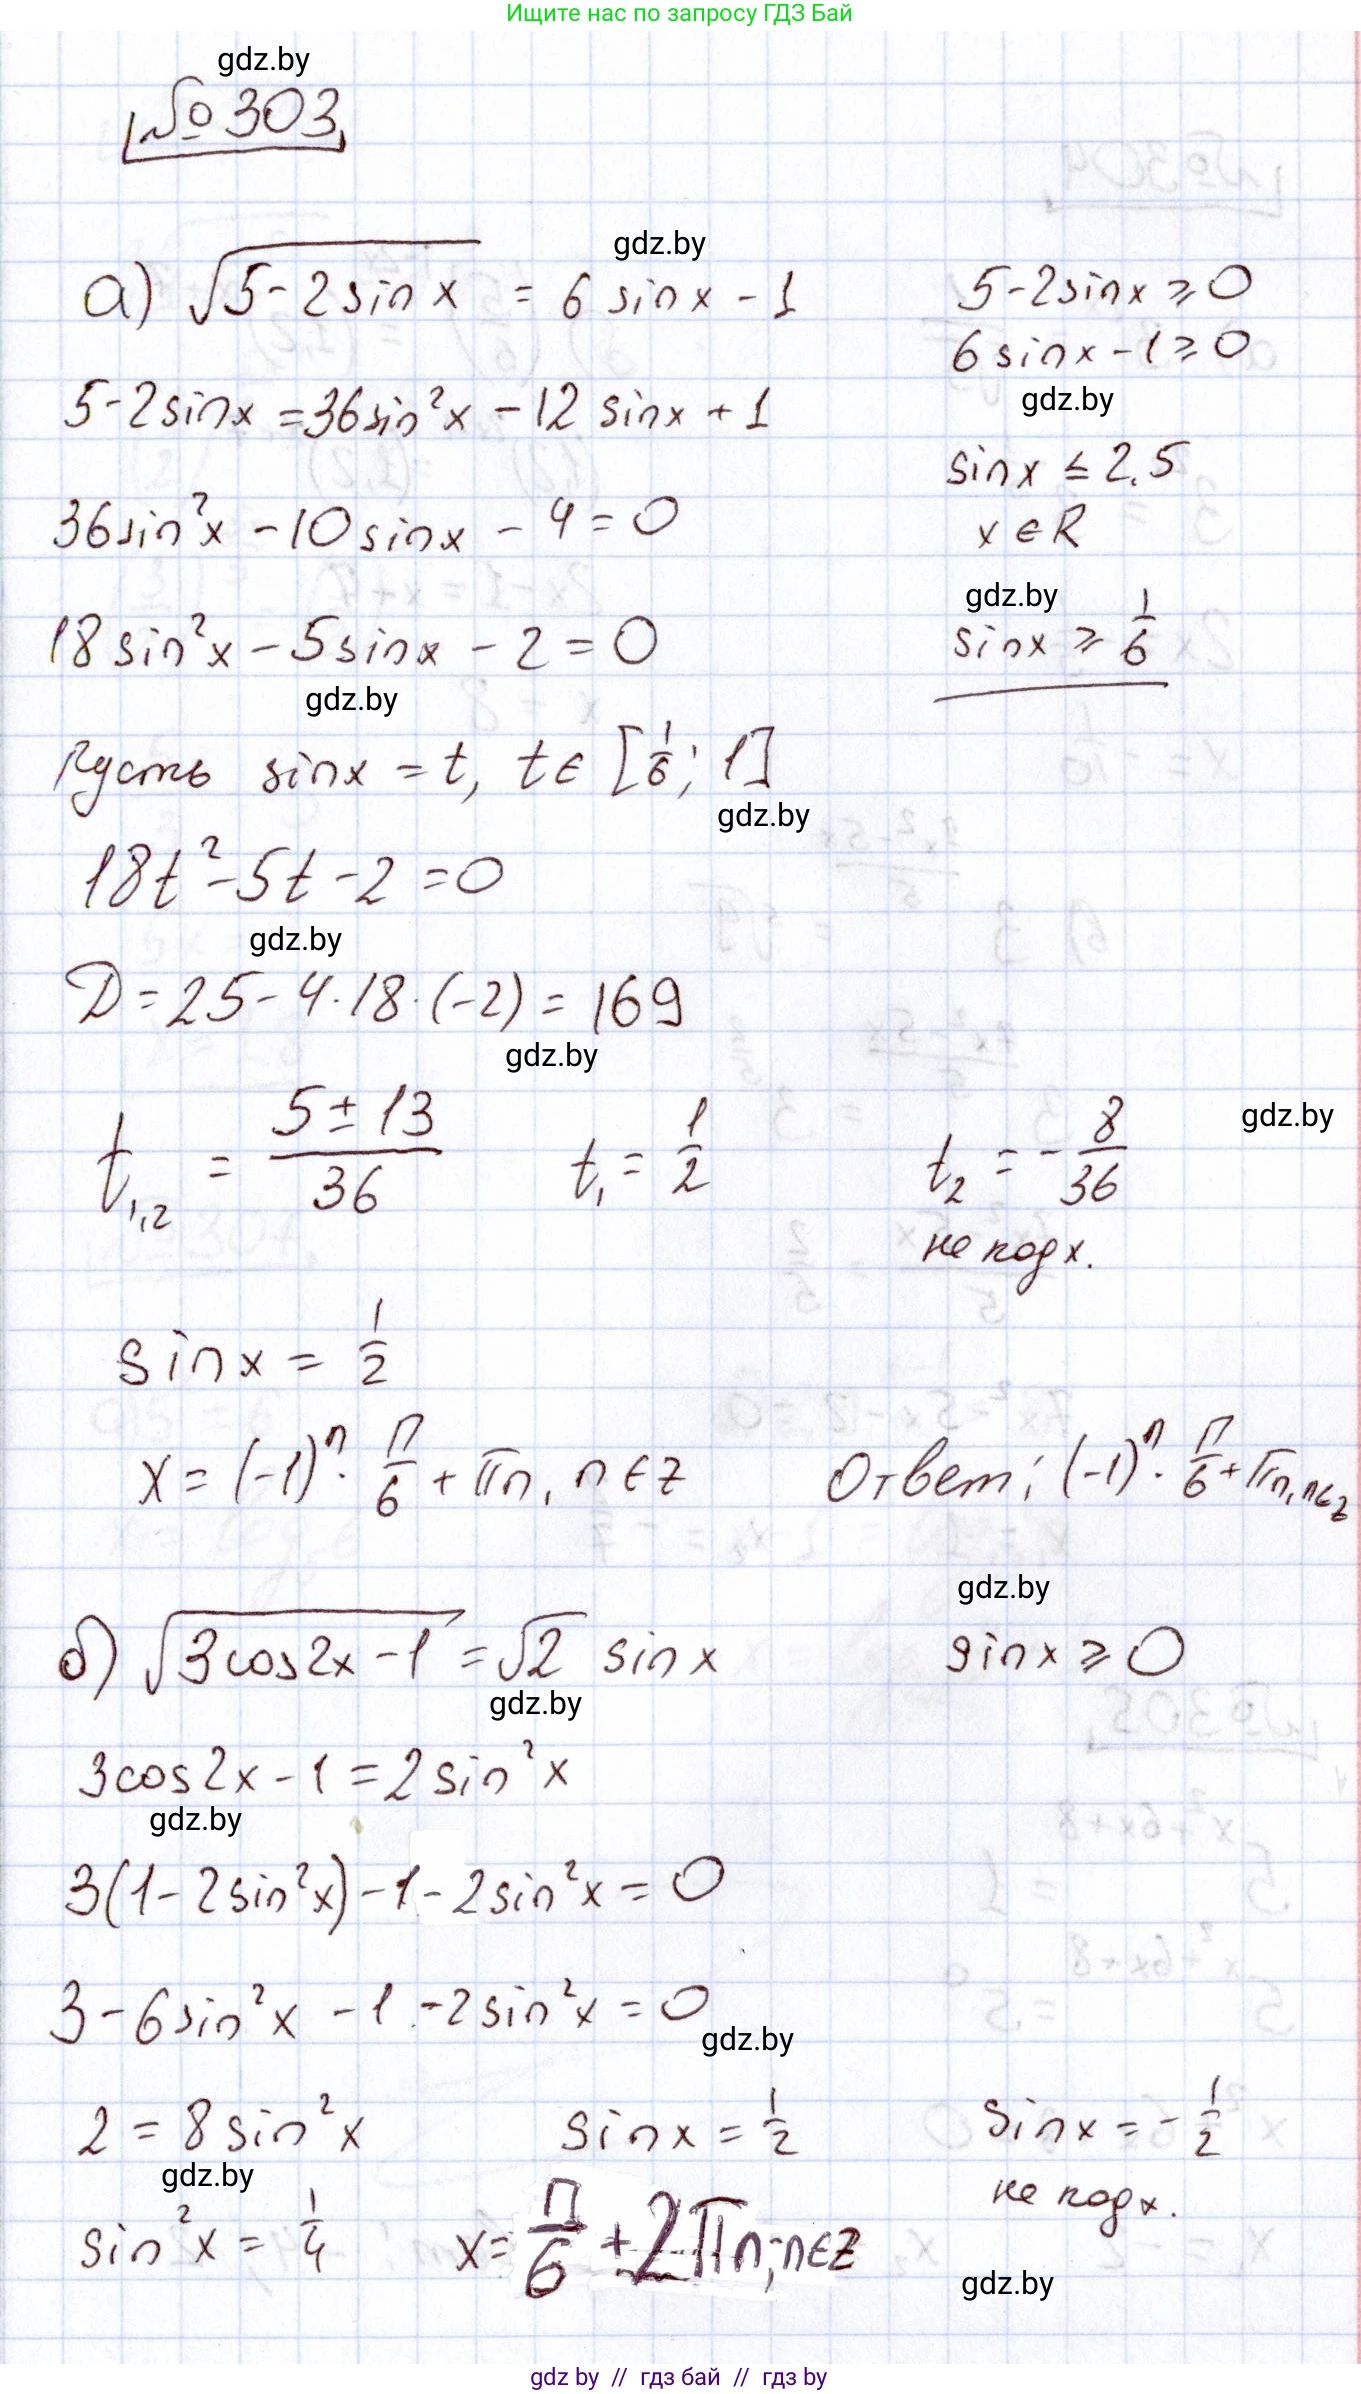 Ищите нас по запросу ГДЗ Бай
gdz.by
№303
gdz.by
а) √(5-2sinx) = 6sinx - 1
5-2sinx ≥ 0
6sinx - 1 ≥ 0
gdz.by
5-2sinx = 36sin²x - 12sinx + 1
sinx ≤ 2,5
x ∈ R
36sin²x - 10sinx - 4 = 0
gdz.by
sinx ≥ 1/6
18sin²x - 5sinx - 2 = 0
gdz.by
Пусть sinx = t, t ∈ [1/6; 1]
gdz.by
18t² - 5t - 2 = 0
gdz.by
D = 25 - 4·18·(-2) = 169
gdz.by
t₁,₂ = (5±13)/36 t₁ = 1/2 t₂ = -8/36
gdz.by
не подх.
sinx = 1/2
x = (-1)ⁿ · П/6 + Пn, n ∈ z Ответ: (-1)ⁿ · П/6 + Пn, n∈z
gdz.by
б) √(3cos2x - 1) = √2 sinx sinx ≥ 0
gdz.by
3cos2x - 1 = 2sin²x
gdz.by
3(1 - 2sin²x) - 1 - 2sin²x = 0
3 - 6sin²x - 1 - 2sin²x = 0
gdz.by
2 = 8sin²x sinx = 1/2 sinx = -1/2
gdz.by
не подх.
sin²x = 1/4 x = П/6 + 2Пn, n∈Z
gdz.by
gdz by // гдз бай // гдз by